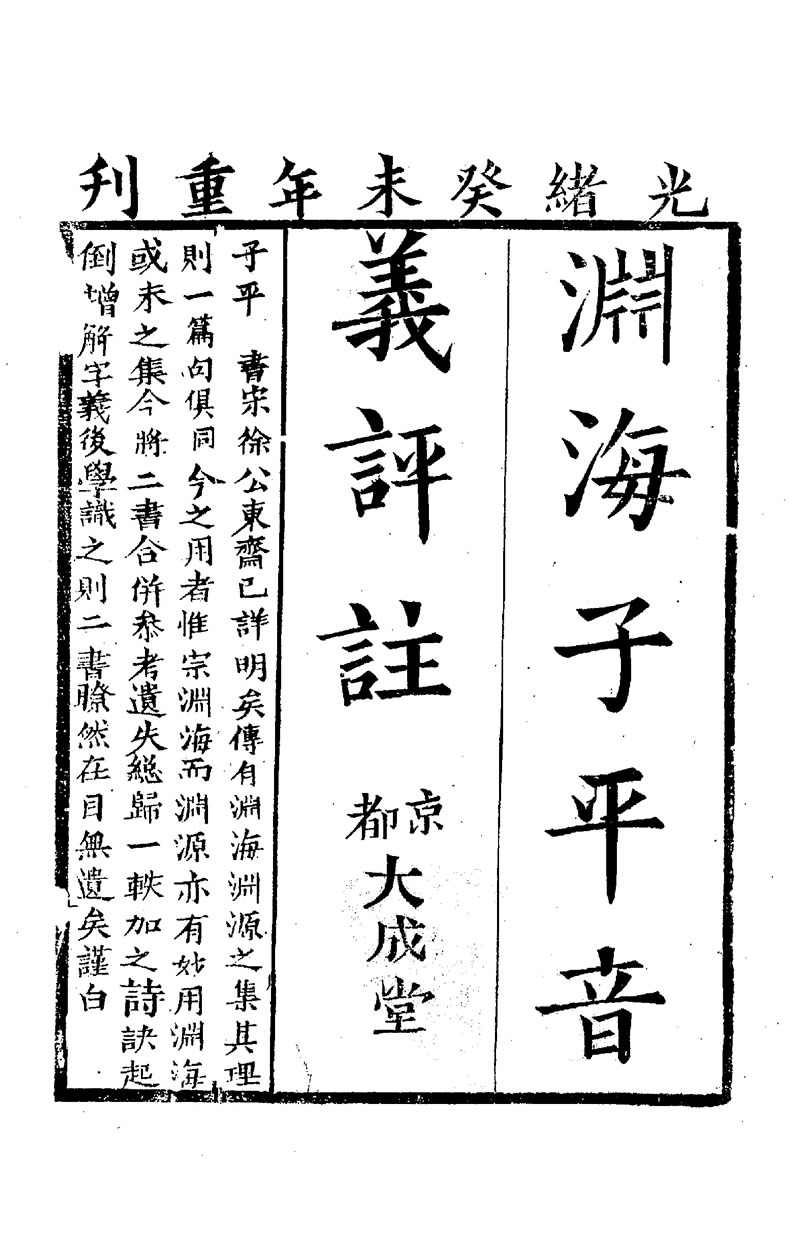 光緒癸未年重刊
淵海子平音
義評註
京都
大成堂
子平 書宋徐公東齋已詳明矣傳有淵海淵源之集其理
則一篇句俱同今之用者惟宗淵海而淵源亦有妙用淵海
或未之集今將二書合併叅考遺失緫歸一帙加之詩訣起
倒增解字義後學識之則二書瞭然在目無遺矣謹白